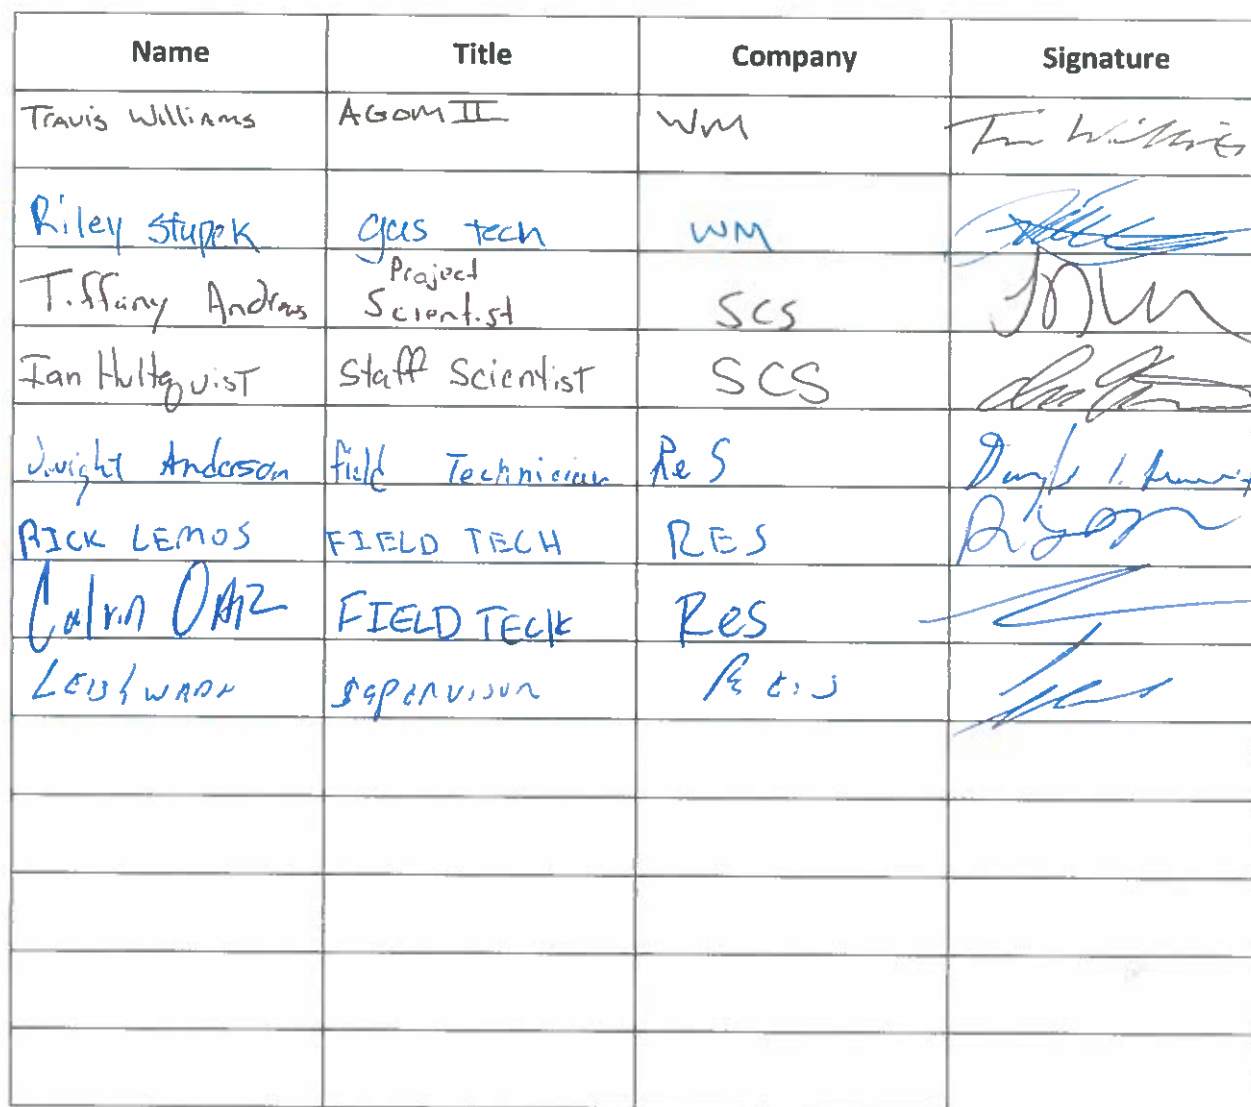 Name Title Company Signature
Travis Williams AGOM II WM
Riley Stupek gas tech WM
Tiffany Andrews Project Scientist SCS
Ian Hultquist Staff Scientist SCS
Dwight Anderson field Technician ReS
RICK LEMOS FIELD TECH RES
Calvin FIELD TECH ReS
Supervisor